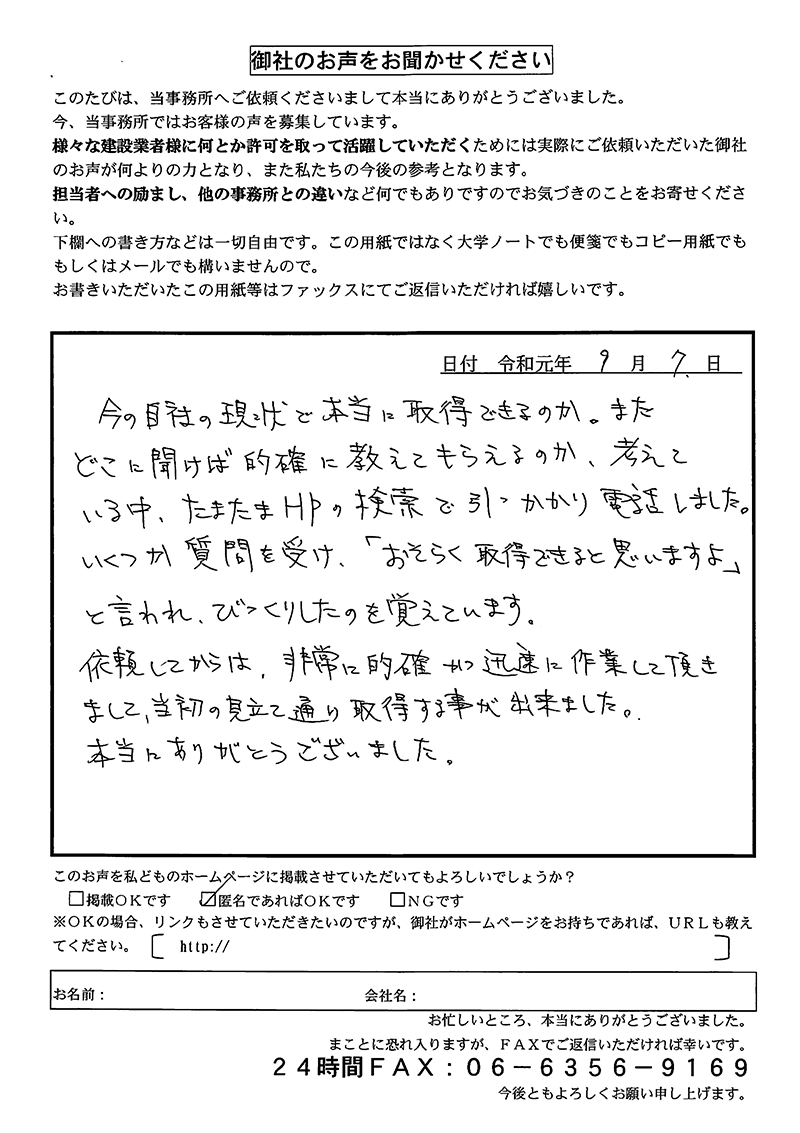 御社のお声をお聞かせください
このたびは、当事務所へご依頼くださいまして本当にありがとうございました。
今、当事務所ではお客様の声を募集しています。
様々な建設業者様に何とか許可を取って活躍していただくためには実際にご依頼いただいた御社
のお声が何よりの力となり、また私たちの今後の参考となります。
担当者への励まし、他の事務所との違いなど何でもありですのでお気づきのことをお寄せくださ
い。
下欄への書き方などは一切自由です。この用紙ではなく大学ノートでも便箋でもコピー用紙でも
もしくはメールでも構いませんので。
お書きいただいたこの用紙等はファックスにてご返信いただければ嬉しいです。
日付 令和元年 9 月 7 日
今の自社の現状で本当に取得できるのか。また
どこに聞けば的確に教えてもらえるのか、考えて
いる中、たまたまHPの検索で引っかかり電話しました。
いくつか質問を受け、「おそらく取得できると思いますよ」
と言われ、びっくりしたのを覚えています。
依頼してからは、非常に的確かつ迅速に作業して頂き
まして、当初の見立て通り取得する事が出来ました。
本当にありがとうございました。
このお声を私どものホームページに掲載させていただいてもよろしいでしょうか？
□掲載ＯＫです ☑匿名であればＯＫです □ＮＧです
※ＯＫの場合、リンクもさせていただきたいのですが、御社がホームページをお持ちであれば、ＵＲＬも教え
てください。 [ http:// ]
お名前： 会社名：
お忙しいところ、本当にありがとうございました。
まことに恐れ入りますが、ＦＡＸでご返信いただければ幸いです。
２４時間ＦＡＸ：０６－６３５６－９１６９
今後ともよろしくお願い申し上げます。